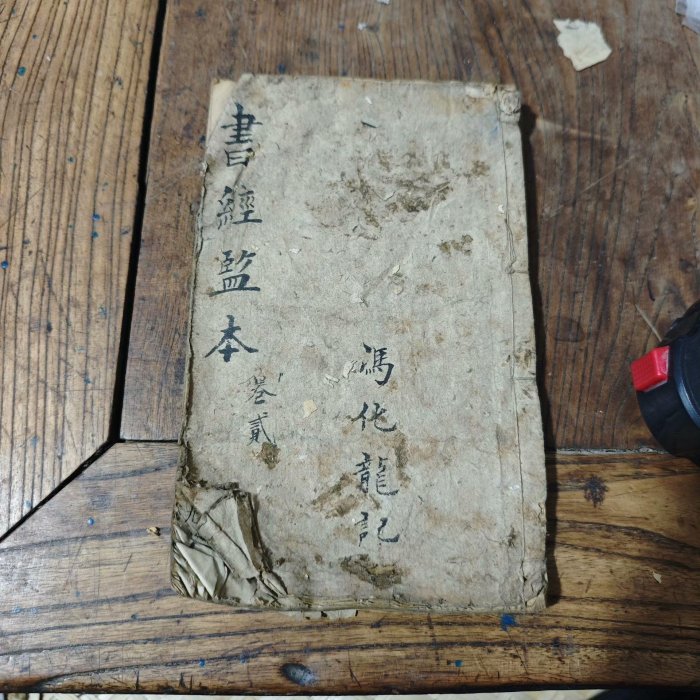 書經監本
卷貳
馮化龍記